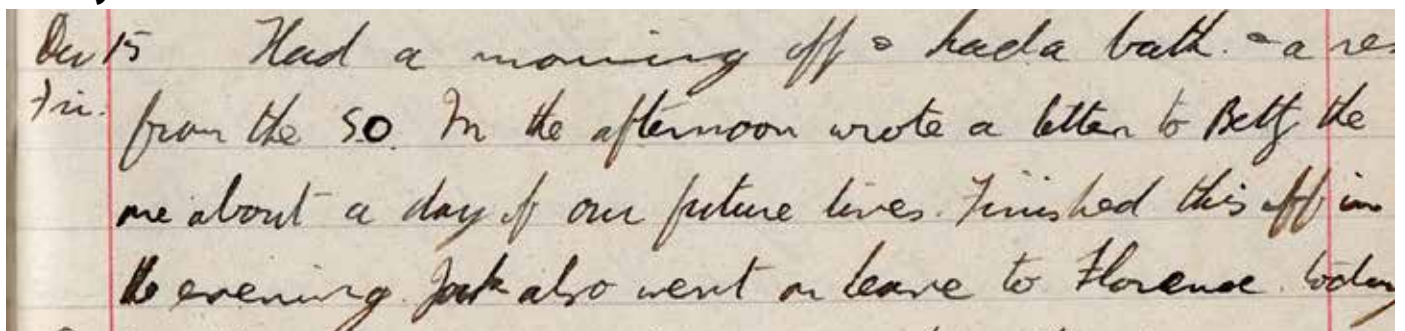 Dec 15 Had a morning off & had a bath. & a res
Fri. from the S.O. In the afternoon wrote a letter to Betty the
one about a day of our future lives. Finished this off in
the evening. Jack also went on leave to Florence today